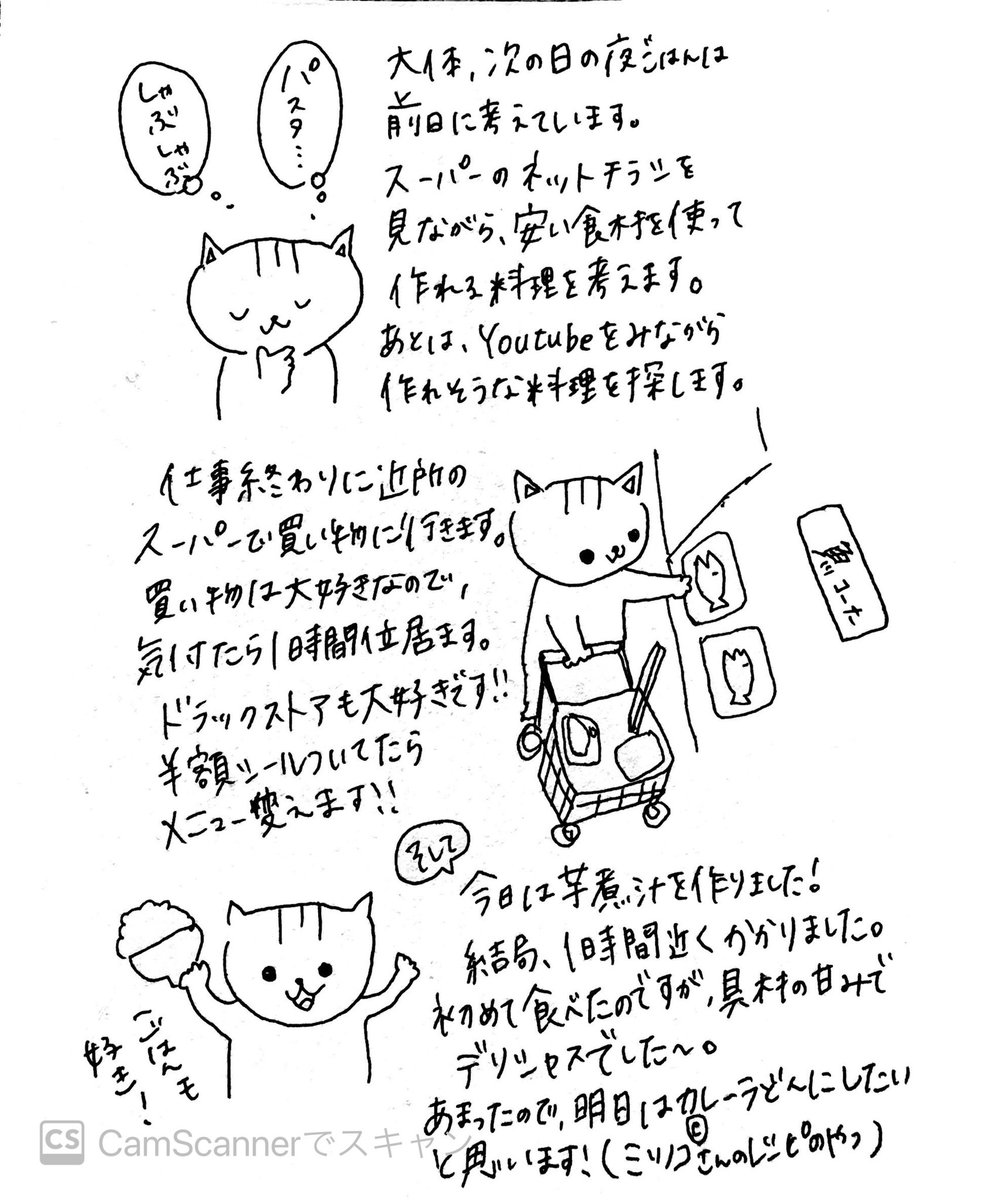 大体、次の日の夜ごはんは
前日に考えています。
スーパーのネットチラシを
見ながら、安い食材を使って
作れる料理を考えます。
あとは、Youtubeをみながら
作れそうな料理を探します。
パスタ…
しゃぶしゃぶ
仕事終わりに近所の
スーパーで買い物に行きます。
買い物は大好きなので、
気付たら1時間位居ます。
ドラックストアも大好きです!!
半額シールついてたら
メニュー変えます!!
魚コーナー
そして
今日は芋煮汁を作りました!
結局、1時間近くかかりました。
初めて食べたのですが、具材の甘みで
デリシャスでした〜。
あまったので、明日はカレーうどんにしたい
と思います!(ミツノコ©さんのレシピのやつ)
ごはんも
好き!
CS CamScannerでスキャン